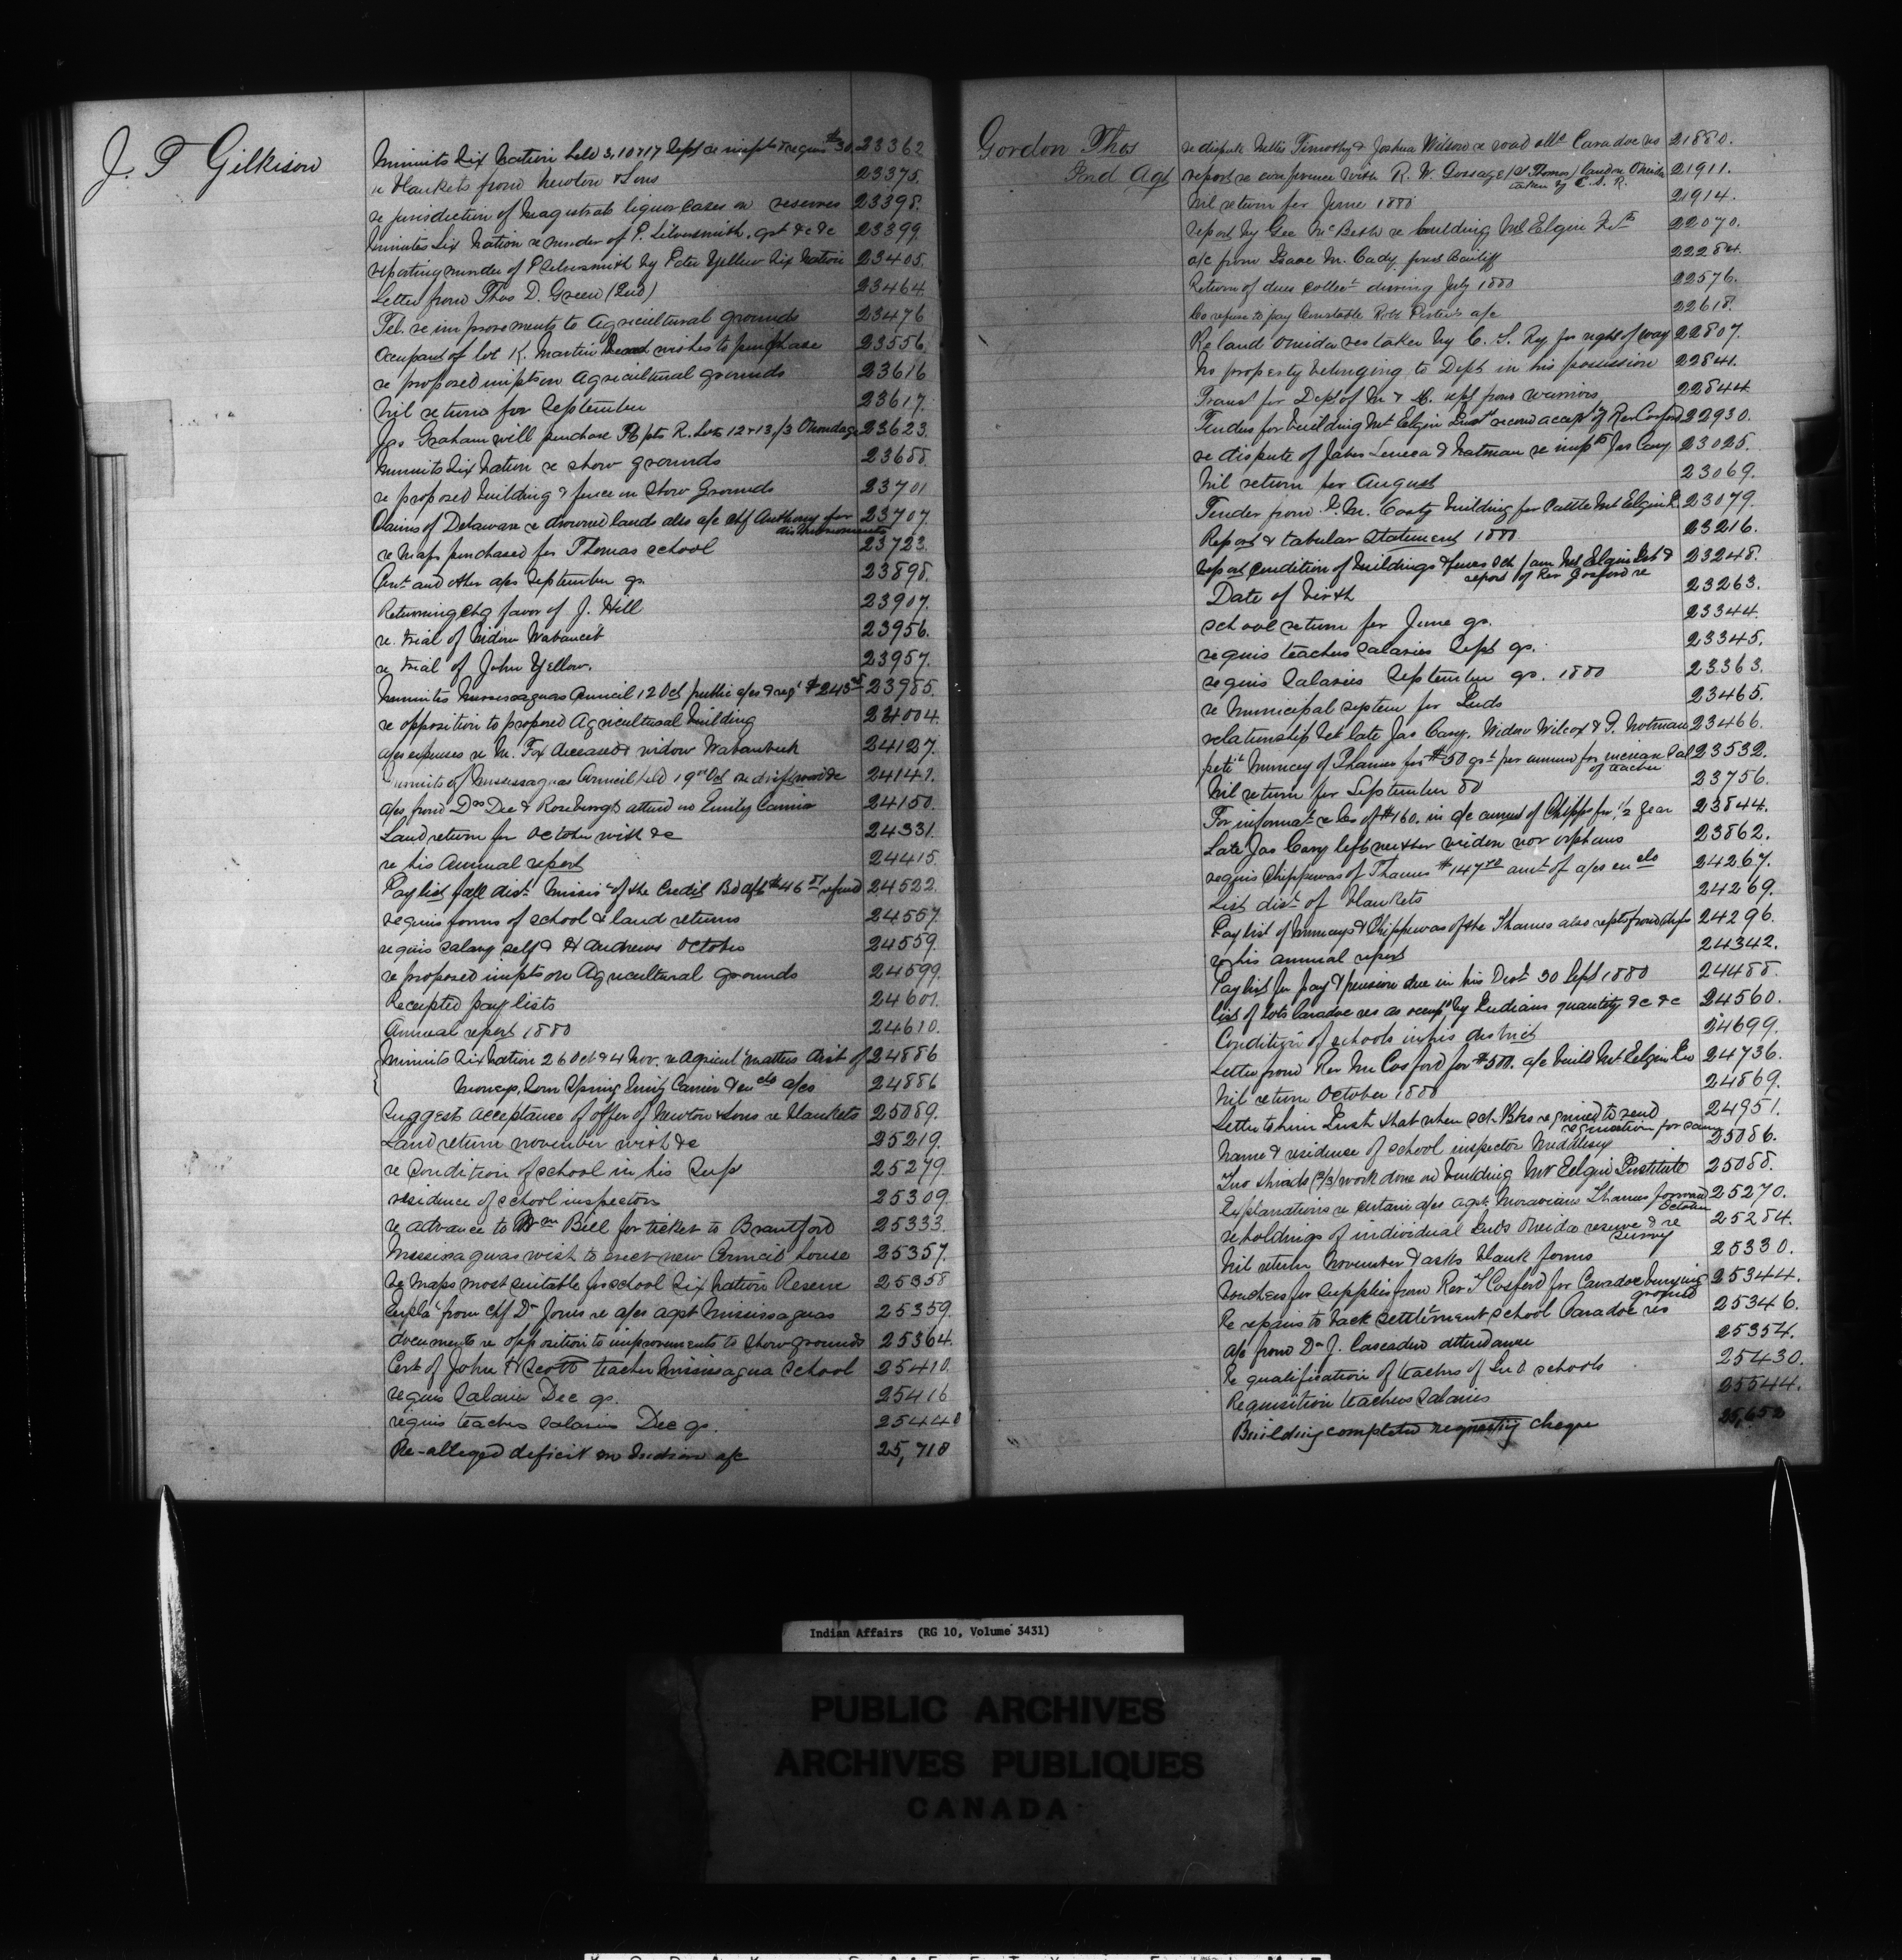 J. T Gilkison
Minuits Six Nation held 3, 10 & 17 Sept re impts & requis $30 23362
re Blankets from Newton & Sons 23375.
re jurisdiction of Magistrats liquor cases on reserves 23398.
Minutes Six Nation re murder of P. Silversmith, gst &c &c 23399
reporting murder of P Silversmith by Peter Yellow Six Nation 23405.
Letter from Thos D. Green (Ind) 23464
Tel. re improvements to Agricultural grounds 23476
Occupant of lot K. Martin Decd wishes to purchase 23556
re proposed impts on Agricultural grounds 23616
Nil returns for September 23617.
Jas Graham will purchase pts R. Lots 12 & 13/3 Onondaga 23623.
Minuits Six Nation re show grounds 23688
re proposed building & fence on Show Grounds 23701
Claims of Delaware re drowned lands also a/c chf Anthony for 23707.
disbursements
re Maps purchased for Thomas school 23723.
Cert and other a/cs September qr. 23898.
Returning chq favor of J. Hill 23907.
re. trial of Widow Wabanceb 23956.
re trial of John Yellow. 23957.
Minuites Mississaguas Council 12 Oct public a/cs & reqt $245 23985.
re opposition to proposed Agricultural building 24004.
a/cs expenses re M. Fox deceased & widow 24127.
Minuits of Mississaguas Council held 19th Oct 24141.
a/cs from Drs Dee & Roseburgh attend on Emily Carrier 24150.
Land return for October with &c 24331.
re his Annual report 24415.
Pay list fall dist. Missis of the Credit Bd aft $46 refund 24522.
requis forms of school & land returns 24557.
requis salary self & H Andrews October 24559.
re proposed impts on Agricultural grounds 24599
Receipted pay lists 24601.
Annual report 1880 24610.
Minuits Six Nation 26 Oct & 4 Nov. re Agricult matters dist of 24886
Moneys, Emily Carrier & encls a/cs 24886
Suggest acceptance of offer of Newton & Sons re blankets 25089.
Land return November with &c 25219.
re Condition of school in his Sup 25279.
residence of school inspectors 25309
re advance to Wm Bill for ticket to Brantford 25333.
Mississaguas wish to erect new Council house 25357.
re Maps most suitable for school Six Nation Reserve 25358
Expla from Chf Dr Jones re a/cs agst Mississaguas 25359.
documents re opposition to improvements to show grounds 25364.
Cert of John H Scott teacher Mississagua school 25410.
requis Salarie Dec qr. 25416
requis teachers salaries Dec qr. 25440
Re-alleged deficit on Indian a/c 25,718
Gordon Thos
Ind Agt
re dispute betn Timothy & Joshua Wilson re road allce Caradoc res 21880.
report re conference with R. W. Gossage (St Thomas) land on Oneida 21911.
taken by C. S. R.
Nil return for June 1880 21914.
report by Geo McBeth re building Mt Elgin 22070.
a/c from Isaac M. Cady, bailiff 22284.
Return of dues collect during July 1880 22576.
Co refuse to pay Constable Robt a/c 22618.
Re land Oneida res taken by C. S. Ry. for right of way 22807.
No property belonging to Dept in his possession 22841.
Transt for Dept of M & D. rept from warriors 22844
Tenders for building Mt Elgin Inst recom accept of Rev Cosford 22930.
re dispute of Jabes Seneca & Natman re impts Jas Cary 23025.
Nil return for August 23069.
Tender from building for Cattle Mt Elgin 23079.
Report & tabular statement 1880 23216.
report condition of buildings & fences Mt Elgin Inst & 23248.
report of Rev Cosford re
Date of birth 23263.
school return for June qr. 23344.
requis teachers salaries Sept qr. 23345.
requis Salaries September qr. 1880 23363.
re Municipal system for Inds 23465.
relationship bet late Jas Cary, Widow Wilcox & G. Notman 23466.
petit Muncey of Thames for $50 gst per annum for increase Sal 23532.
of teacher
Nil return for September 80 23756.
For informat re Co of $160. in a/c annuit of Chipps for 1/2 year 23844.
Late Jas Cary left neither widow nor orphans 23862.
requis Chippewas of Thames $147 amt of a/cs encls 24267.
List dist of blankets 24269.
Pay list of Munceys & Chippewas of the Thames also 24296.
re his annual report 24342.
Pay list for pay & pension due in his Dist 30 Sept 1880 24488.
list of lots Caradoc res as occupd by Indians quantity &c &c 24560.
Condition of schools in his district 24699.
Letter from Rev Mr Cosford for $500. a/c build Mt Elgin 24736.
Nil return October 1880 24869.
Letter to him that when required to send 24951.
requisition for same
Name & residence of school inspector Middlesex 25086.
Two thirds (2/3) work done on building Mt Elgin Institute 25088.
Explanations re certain a/cs agst Moravians Thames forward 25270.
October
re holdings of individual Inds Oneida reserve & re 25284.
survey
Nil return November & asks blank forms 25330.
Vouchers for supplies from Rev T Cosford for Caradoc burying 25344.
ground
Re repairs to back settlement school Caradoc res 25346.
a/c from Dr J. attendance 25354.
Re qualification of teachers of Ind schools 25430.
Requisition teachers salaries 25544.
Building completed requesting cheque 25,652
Indian Affairs (RG 10, Volume 3431)
PUBLIC ARCHIVES
ARCHIVES PUBLIQUES
CANADA